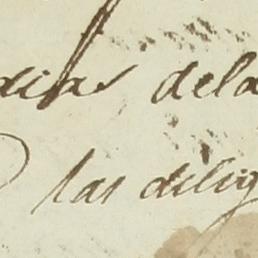 dias dela
las dilig